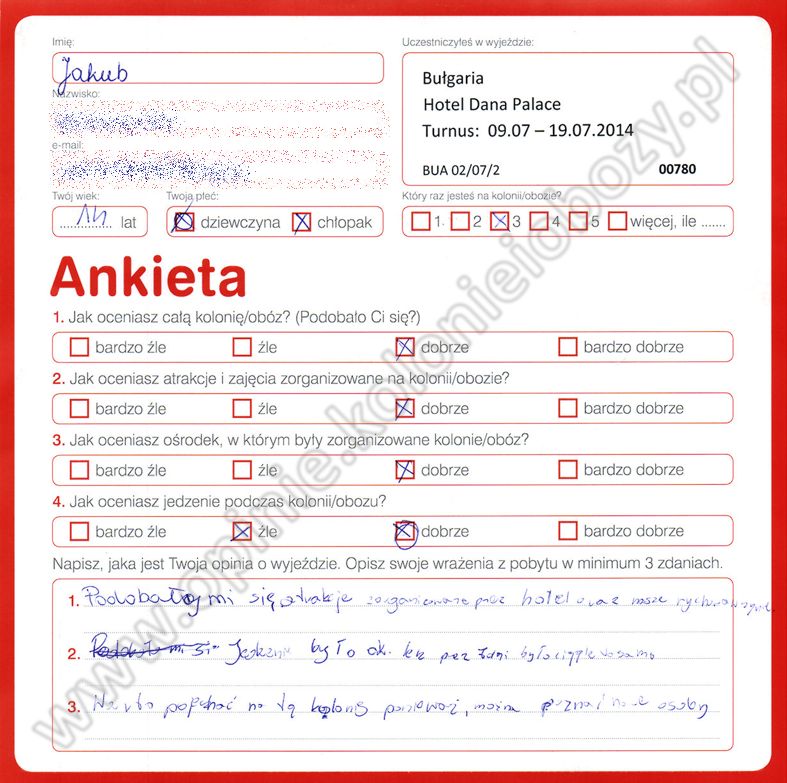 Imię:
Uczestniczyłeś w wyjeździe:
Jakub
Nazwisko:
Bułgaria
Hotel Dana Palace
Turnus: 09.07 – 19.07.2014
e-mail:
BUA 02/07/2 00780
Twój wiek: Twoja płeć: Który raz jesteś na kolonii/obozie?
14 lat dziewczyna chłopak 1 2 3 4 5 więcej, ile .......
Ankieta
1. Jak oceniasz całą kolonię/obóz? (Podobało Ci się?)
bardzo źle źle dobrze bardzo dobrze
2. Jak oceniasz atrakcje i zajęcia zorganizowane na kolonii/obozie?
bardzo źle źle dobrze bardzo dobrze
3. Jak oceniasz ośrodek, w którym były zorganizowane kolonie/obóz?
bardzo źle źle dobrze bardzo dobrze
4. Jak oceniasz jedzenie podczas kolonii/obozu?
bardzo źle źle dobrze bardzo dobrze
Napisz, jaka jest Twoja opinia o wyjeździe. Opisz swoje wrażenia z pobytu w minimum 3 zdaniach.
1. Podobały mi się atrakcje zorganizowane przez hotel oraz nasze
2. Jedzenie było ok. było ciągle to samo
3. Warto pojechać na tą kolonię ponieważ, można poznać nowe osoby
www.opinie.kolonieiobozy.pl